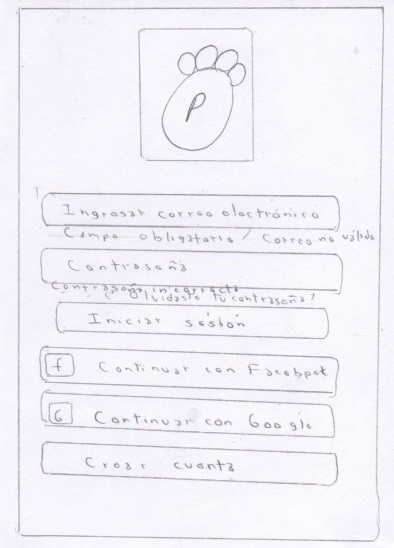 P
Ingresar correo electrónico
Campo obligatorio / Correo no válido
Contraseña
Contraseña incorrecta
¿Olvidaste tu contraseña?
Iniciar sesión
f Continuar con Facebpot
G Continuar con Google
Crear cuenta